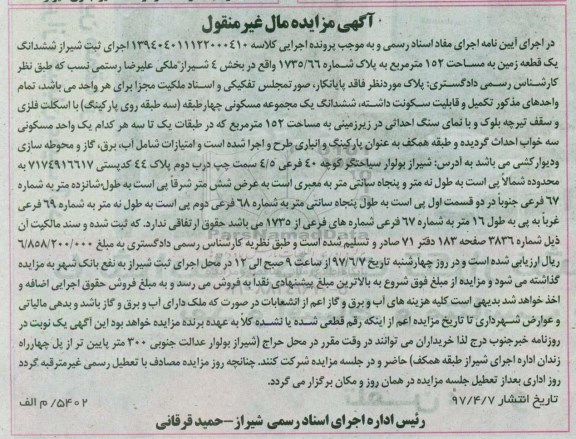 آگهی مزایده مال غیر منقول
در اجرای آیین نامه اجرای مفاد اسناد رسمی و به موجب پرونده اجرایی کلاسه ۱۳۹۴۰۴۰۱۱۱۲۲۰۰۰۴۱۰ اجرای ثبت شیراز ششدانگ
یک قطعه زمین به مساحت ۱۵۲ مترمربع به پلاک شماره ۱۷۳۵/۶۶ واقع در بخش ۴ شیراز ملکی علیرضا رستمی نسب که طبق نظر
کارشناس رسمی دادگستری: پلاک موردنظر فاقد پایانکار، صورتمجلس تفکیکی و اسناد ملکیت مجزا برای هر واحد می باشد، تمام
واحدهای مذکور تکمیل و قابلیت سکونت داشته، ششدانگ یک مجموعه مسکونی چهارطبقه (سه طبقه روی پارکینگ) با اسکلت فلزی
و سقف تیرچه بلوک و با نمای سنگ احداثی در زیرزمینی به مساحت ۱۵۲ مترمربع که در طبقات یک تا سه هر کدام یک واحد مسکونی
سه خواب احداث گردیده و طبقه همکف به عنوان پارکینگ و انباری طرح و اجرا شده است و امتیازات شامل آب، برق، گاز و محوطه سازی
ودیوارکشی می باشد به آدرس: شیراز بولوار سیاحتگر کوچه ۴۰ فرعی ۴/۵ سمت چپ درب دوم پلاک ۴۴ کدپستی ۷۱۷۴۹۱۶۶۱۷ به
محدوده شمالاً پی است به طول نه متر و پنجاه سانتی متر به معبری است به عرض شش متر شرقاً پی است به طول شانزده متر به شماره
۶۷ فرعی جنوباً در دو قسمت اول پی است به طول پنجاه سانتی متر به شماره ۶۸ فرعی دوم پی است به طول نه متر به شماره ۶۹ فرعی
غرباً به پی به طول ۱۶ متر به شماره ۶۷ فرعی شماره های فرعی از ۱۷۳۵ می باشد حقوق ارتفاقی ندارد. که ثبت شده و سند مالکیت آن
ذیل شماره ۳۸۳۶ صفحه ۱۸۳ دفتر ۷۱ صادر و تسلیم شده است و طبق نظریه کارشناس رسمی دادگستری به مبلغ ۶/۸۵۸/۲۰۰/۰۰۰
ریال ارزیابی شده است و در روز چهارشنبه تاریخ ۹۷/۶/۷ از ساعت ۹ صبح الی ۱۲ در محل اجرای ثبت شیراز به نفع بانک شهر به مزایده
گذاشته می شود و مزایده از مبلغ فوق شروع به بالاترین مبلغ پیشنهادی نقداً به فروش می رسد و به مبلغ فروش حقوق اجرایی اضافه و
اخذ خواهد شد بدیهی است کلیه هزینه های آب و برق و گاز اعم از انشعابات در صورت که ملک دارای آب و برق و گاز باشد و بدهی مالیاتی
و عوارض شهرداری تا تاریخ مزایده اعم از اینکه رقم قطعی شده یا نشده کلاً به عهده برنده مزایده خواهد بود این آگهی یک نوبت در
روزنامه خبرجنوب درج لذا خریداران می توانند در وقت مقرر در محل حراج (شیراز بولوار عدالت جنوبی ۳۰۰ متر پایین تر از پل چهارراه
زندان اداره اجرای شیراز طبقه همکف) حاضر و در جلسه مزایده شرکت کنند. چنانچه روز مزایده مصادف با تعطیل رسمی غیرمترقبه گردد
روز اداری بعداز تعطیل جلسه مزایده در همان روز و مکان برگزار می گردد.
تاریخ انتشار ۹۷/۴/۷
۵۴۰۲/ م الف
رئیس اداره اجرای اسناد رسمی شیراز-حمید قرقانی